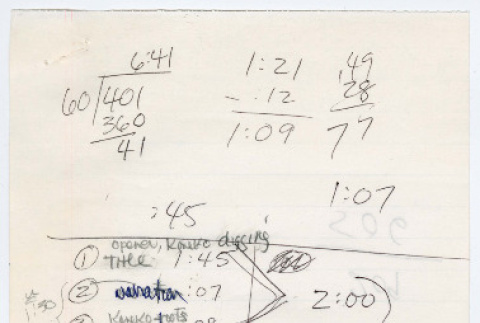 6:41
60 401
360
41
1:21
- :12
1:09
49
28
77
1:07
:45
opener, Kanko digging
① Title 1:45
② narration :07
2:00
Kanko